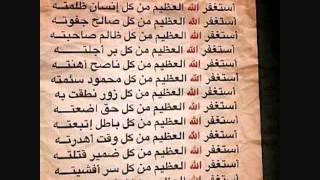 أستغفر الله العظيم من كل إنسان ظلمته
أستغفر الله العظيم من كل صالح جفوته
أستغفر الله العظيم من كل ظالم صاحبته
أستغفر الله العظيم من كل بر أجلته
أستغفر الله العظيم من كل ناصح أهنته
أستغفر الله العظيم من كل محمود سئمته
أستغفر الله العظيم من كل زور نطقت به
أستغفر الله العظيم من كل حق اضعته
أستغفر الله العظيم من كل باطل إتبعته
أستغفر الله العظيم من كل وقت أهدرته
أستغفر الله العظيم من كل ضمير قتلته
أستغفر الله العظيم من كل سر أفشيته